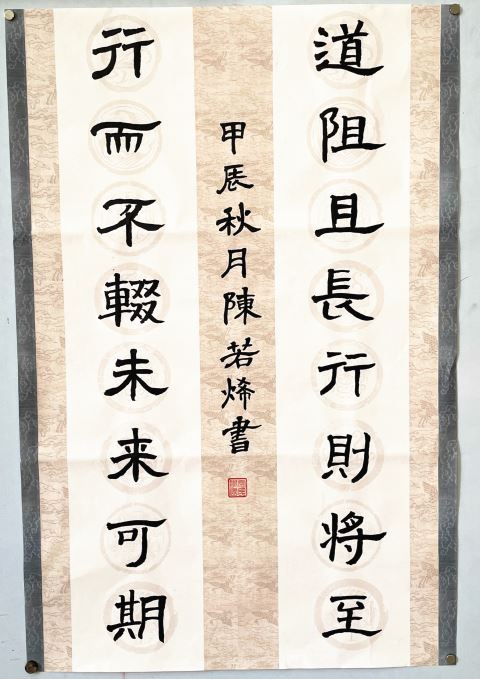 道阻且長行則将至
行而不輟未来可期
甲辰秋月陳若烯書